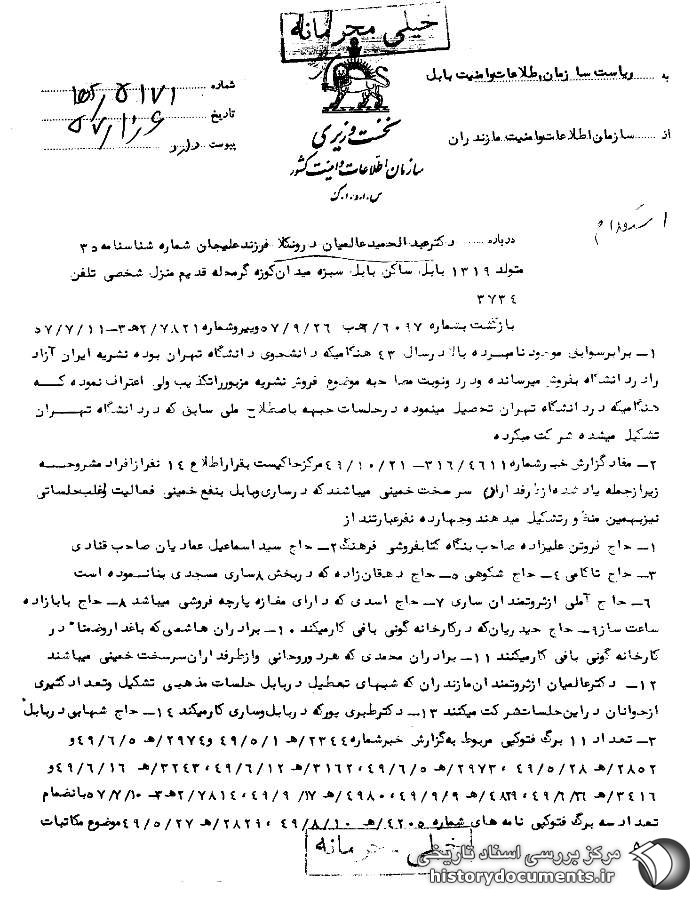 خیلی محرمانه
به ..... ریاست سازمان اطلاعات وامنیت بابل
از ..... سازمان اطلاعات وامنیت مازندران
نخست وزیری
سازمان اطلاعات و امنیت کشور
س.ا.و.ا.ک
شماره
تاریخ
پیوست دارد
درباره ..... دکترعبدالحمیدعالمیان درونکلا فرزندعلیجان شماره شناسنامه ۳۵
متولد ۱۳۱۹ بابل ساکن بابل سبزه میدان کوزه گرمحله قدیم منزل شخصی تلفن
۳۷۳۴
بازگشت بشماره ۲/۶۰۹۷هب ۵۷/۹/۲۶ وپیروشماره ۲/۷۸۲۱هـ۳ـ۵۷/۷/۱۱
۱ـ برابرسوابق موجودنامبرده بالادرسال ۴۳ هنگامیکه دانشجوی دانشگاه تهران بوده نشریه ایران آزاد
رادردانشگاه بفروش میرسانده ودردونوبت مصاحبه موضوع فروش نشریه مزبورراتکذیب ولی اعتراف نموده کـه
هنگامیکه دردانشگاه تهران تحصیل مینموده درجلسات جبهه باصطلاح ملی سابق که دردانشگاه تهـران
تشکیل میشده شرکت میکرده
۲ـ مفادگزارش خبرشماره ۳۱۶/۴۶۱۱ـ ۴۹/۱۰/۲۱مرکزحاکیست بقراراطلاع ۱۴ نفرازافراد مشروحـه
زیرازجمله یادشده ازطرفداران سرسخت خمینی میباشندکه درساری وبابل بنفع خمینی فعالیت واغلب جلساتی
نیزبهمین منظورتشکیل میدهند وچهارده نفرعبارتند از
۱ـ حاج فروتن علیزاده صاحب بنگاه کتابفروشی فرهنگ ۲ـ حاج سیداسماعیل عمادیان صاحب قنادی
۳ـ حاج تاکامی ۴ـ حاج شکوهی ۵ـ حاج دهقان زاده که دربخش ۸ساری مسجدی بنانموده است
۶ـ حاج آملی ازثروتمندان ساری ۷ـ حاج اسدی که دارای مغازه پارچه فروشی میباشد ۸ـ حاج بابازاده
ساعت ساز۹ـ حاج حیدریان که درکارخانه گونی بافی کارمیکند ۱۰ـ برادران هاشمی که باغدار وضمناً در
کارخانه گونی بافی کارمیکنند ۱۱ـ برادران محمدی که هردوروحانی وازطرفداران سرسخت خمینی میباشند
۱۲ـ دکترعالمیان ازثروتمندان مازندران که شبهای تعطیل دربابل جلسات مذهبی تشکیل وتعدادکثیری
ازجوانان دراین جلسات شرکت میکنند ۱۳ـ دکترطبری پورکه دربابل وساری کارمیکند ۱۴ـ حاج شهابی دربابل
۳ـ تعداد ۱۱ برگ فتوکپی مربوط به گزارش خبرشماره ۲۳۴۴/هـ ۴۹/۵/۱ و ۲۹۷۴/هـ ۴۹/۶/۵ و
۲۸۵۲/هـ ۴۹/۵/۲۸ ، ۲۹۷۳/هـ ۴۹/۶/۵ ، ۳۱۶۲/هـ ۴۹/۶/۱۲ ، ۳۲۴۳/هـ ۴۹/۶/۱۶ و
۳۴۱۶/هـ ۴۹/۶/۲۶ ، ۴۸۳۹/هـ ۴۹/۹/۹ ، ۴۹۸۰/هـ ۴۹/۹/۱۷ ، ۲/۷۸۱۴هـ۳ـ ۵۷/۷/۱۰ بانضمام
تعدادسه برگ فتوکپی نامه های شماره ۴۲۰۵/هـ ۴۹/۸/۱۰ ، ۲۸۲۹/هـ ۴۹/۵/۲۷ موضوع مکاتبات
خیلی محرمانه
مرکز بررسی اسناد تاریخی
historydocuments.ir